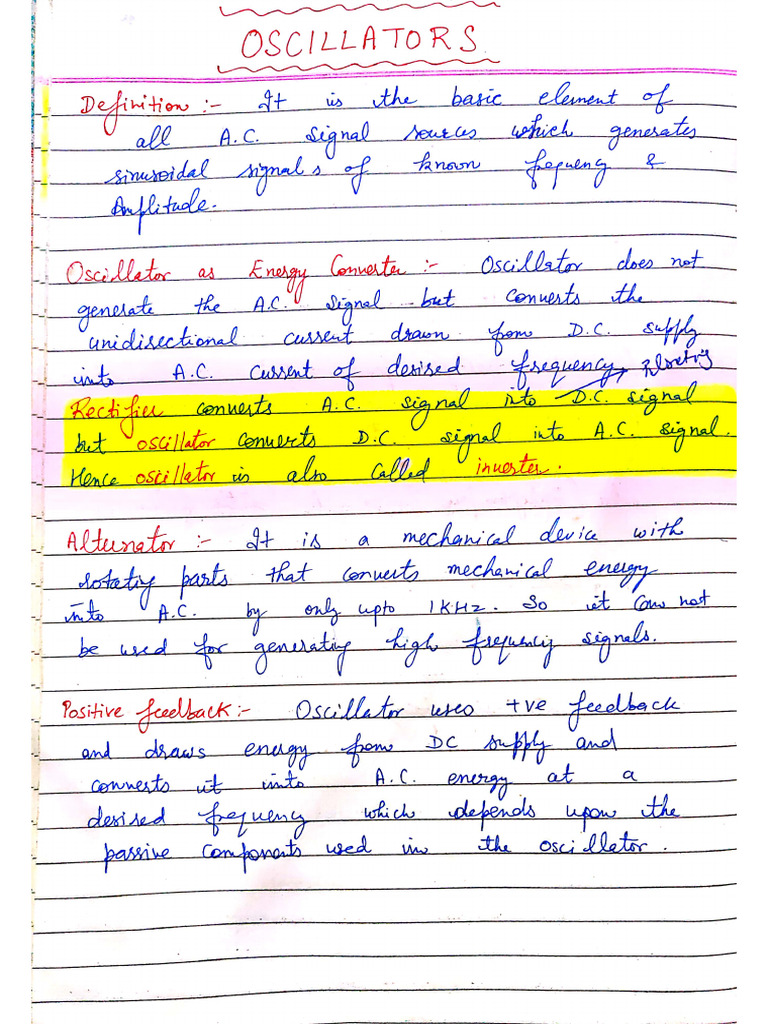 OSCILLATORS
Definition :- It is the basic element of
all A.C. signal sources which generates
sinusoidal signals of known frequency &
Amplitude.
Oscillator as Energy Converter :- Oscillator does not
generate the A.C. signal but converts the
unidirectional current drawn from D.C. supply
into A.C. current of desired frequency
Rectifier converts A.C. signal into D.C. signal
but oscillator converts D.C. signal into A.C. signal.
Hence oscillator is also called inverter.
Alternator :- It is a mechanical device with
rotating parts that converts mechanical energy
into A.C. by only upto 1KHz. So it can not
be used for generating high frequency signals.
Positive feedback :- Oscillator uses +ve feedback
and draws energy from DC supply and
converts it into A.C. energy at a
desired frequency which depends upon the
passive components used in the oscillator.